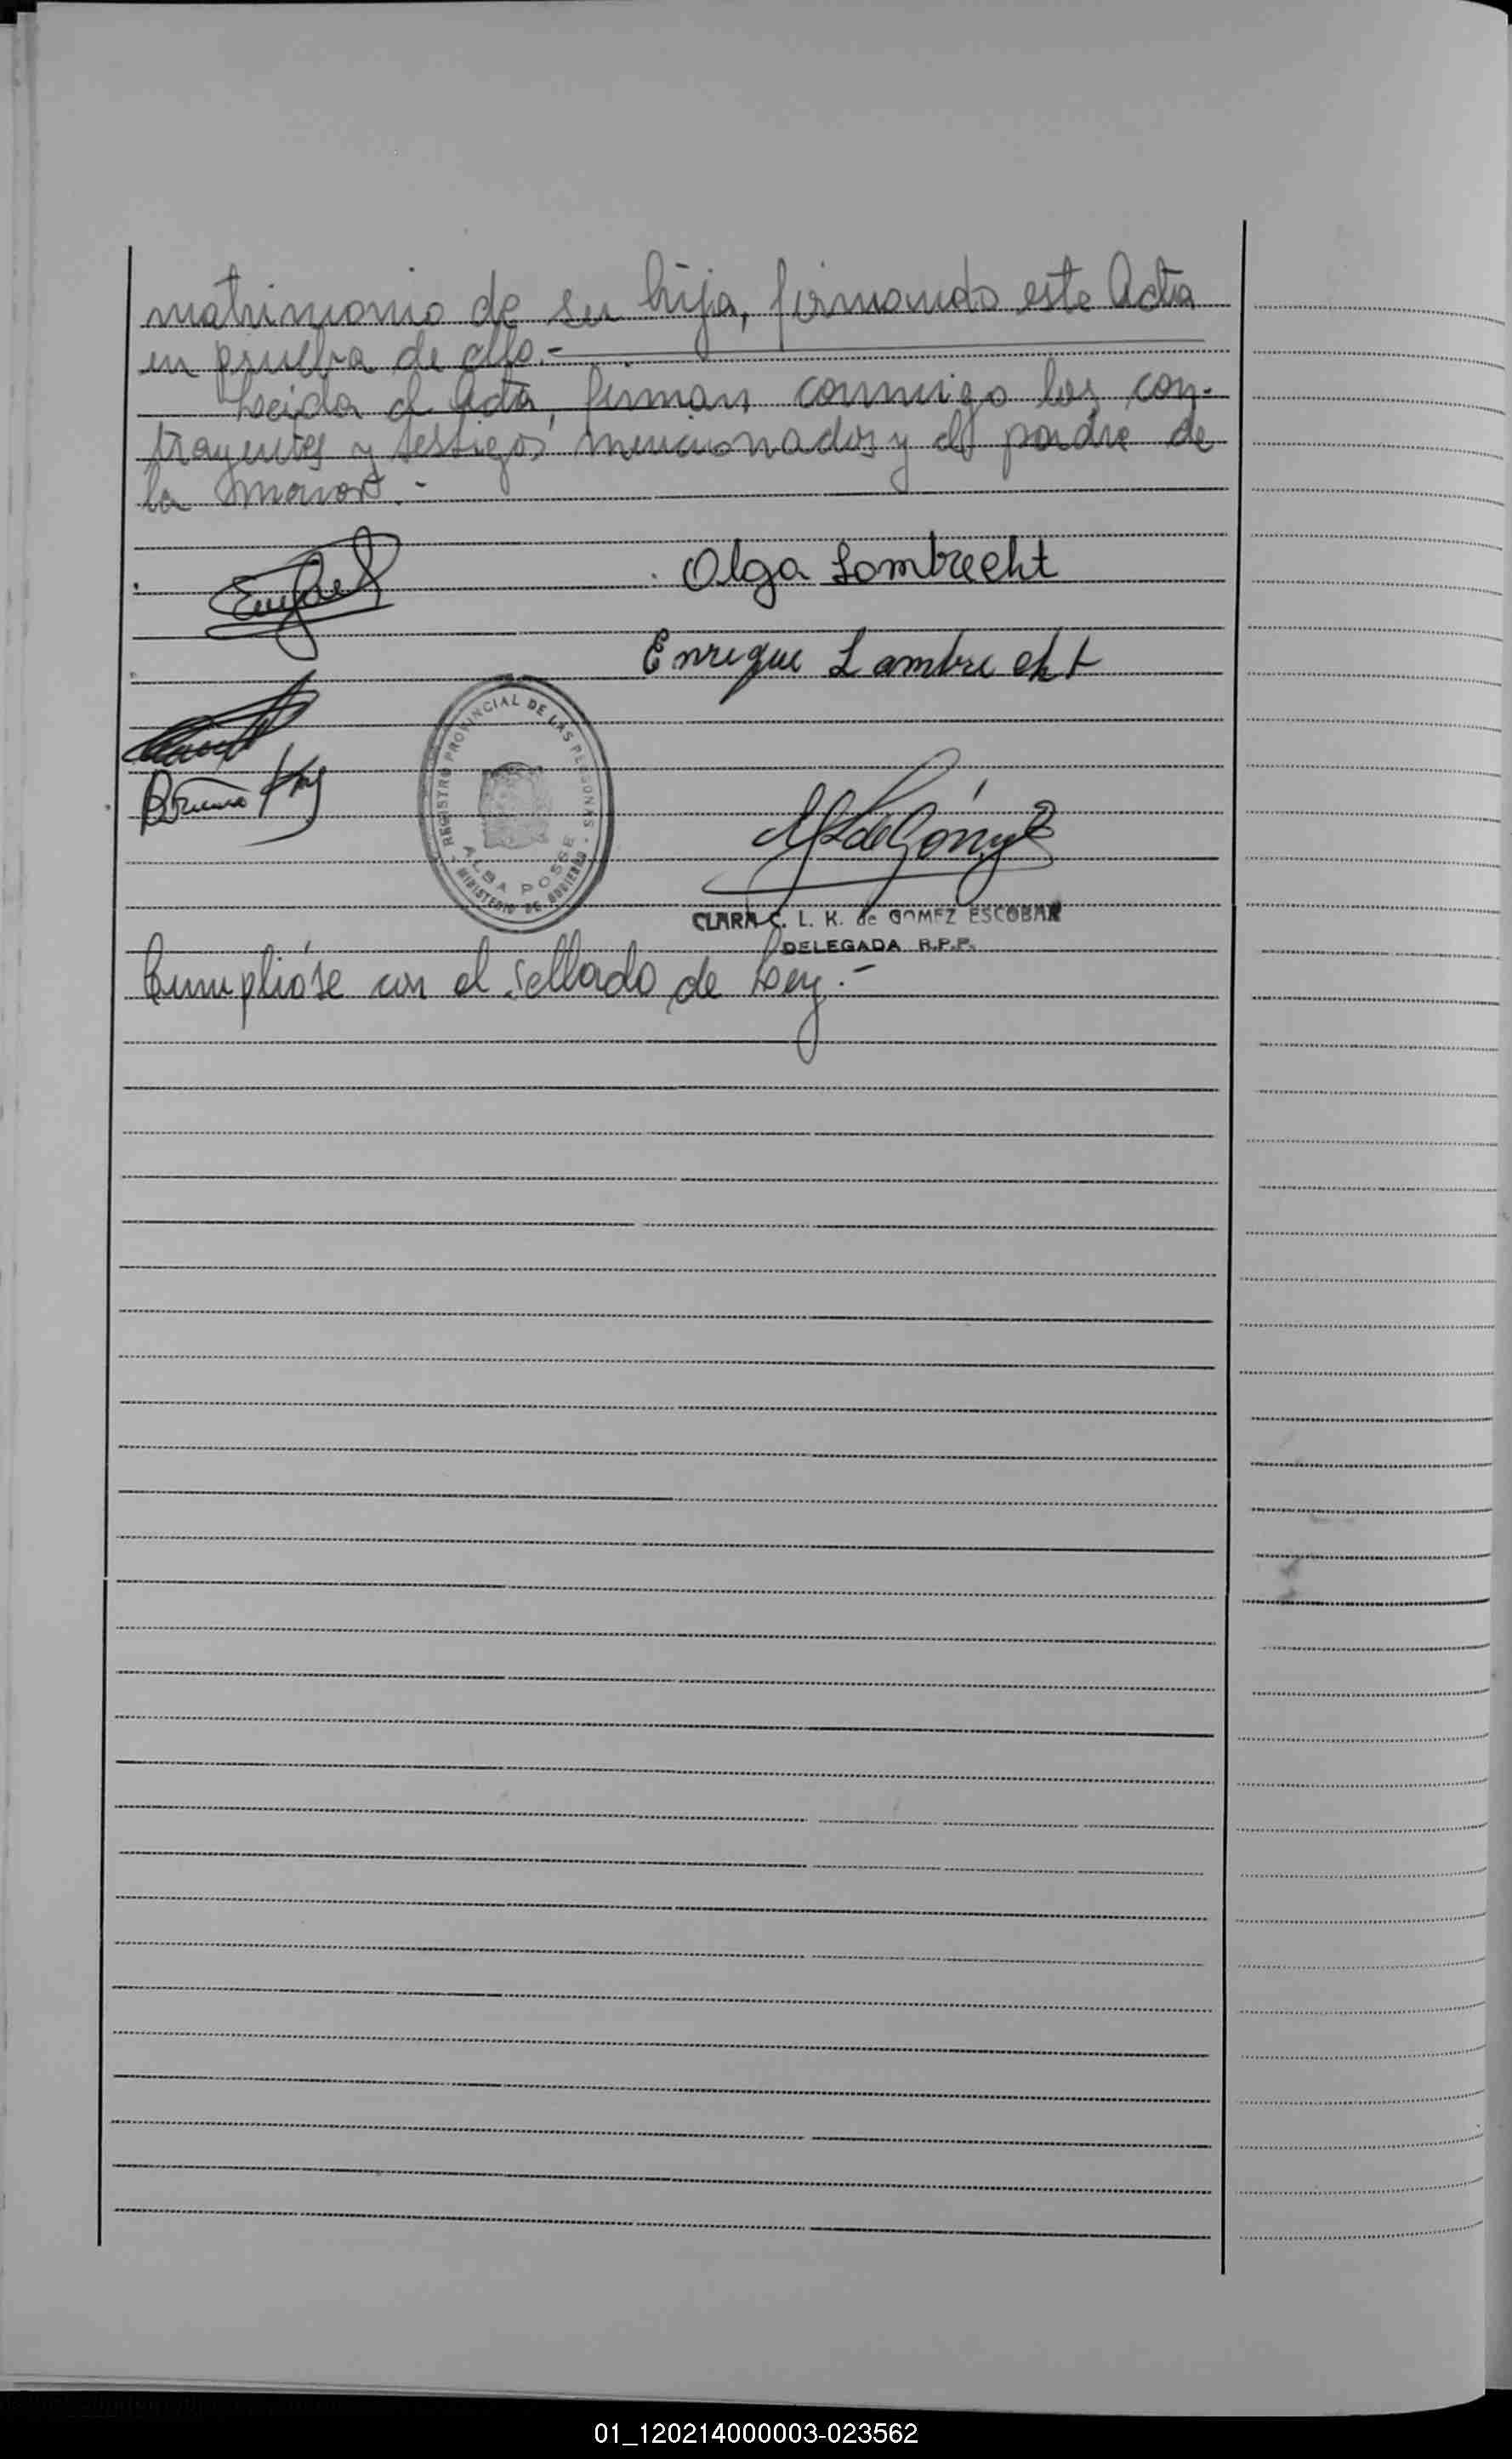 matrimonio de su hija, firmando este Acta
en prueba de ello.-
Leida el Acta, firman conmigo los con-
trayentes y testigos mencionados y el padre de
la menor.-
Olga Lambrecht
Enrique Lambrecht
Bruno
REGISTRO PROVINCIAL DE LAS PERSONAS
ALBA POSSE
MINISTERIO DE GOBIERNO
CLARA C. L. K. de GOMEZ ESCOBAR
DELEGADA R.P.P.
Cumplióse con el sellado de Ley.-
01_120214000003-023562